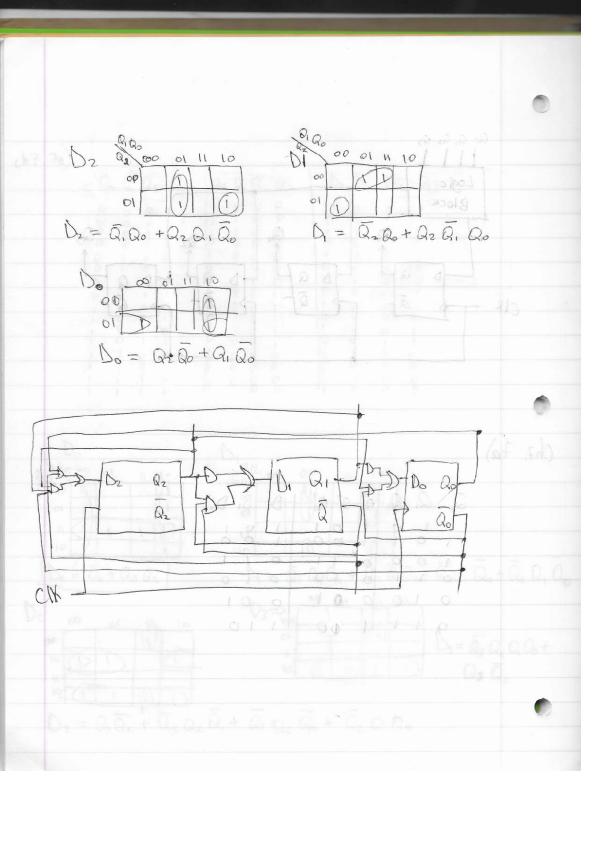 D2 Q1Q0 Q2 00 01 11 10
00 1
01 1 1
D2 = Q̄1Q0 + Q2 Q1 Q̄0
D1 Q1Q0 Q2 00 01 11 10
00 1 1
01 1
D1 = Q̄2Q0 + Q2 Q̄1 Q0
D0 00 01 11 10
00 1
01 1 1
D0 = Q2 Q̄0 + Q1 Q̄0
D2 Q2 D1 Q1 D0 Q0
Q̄2 Q̄ Q̄0
ClK